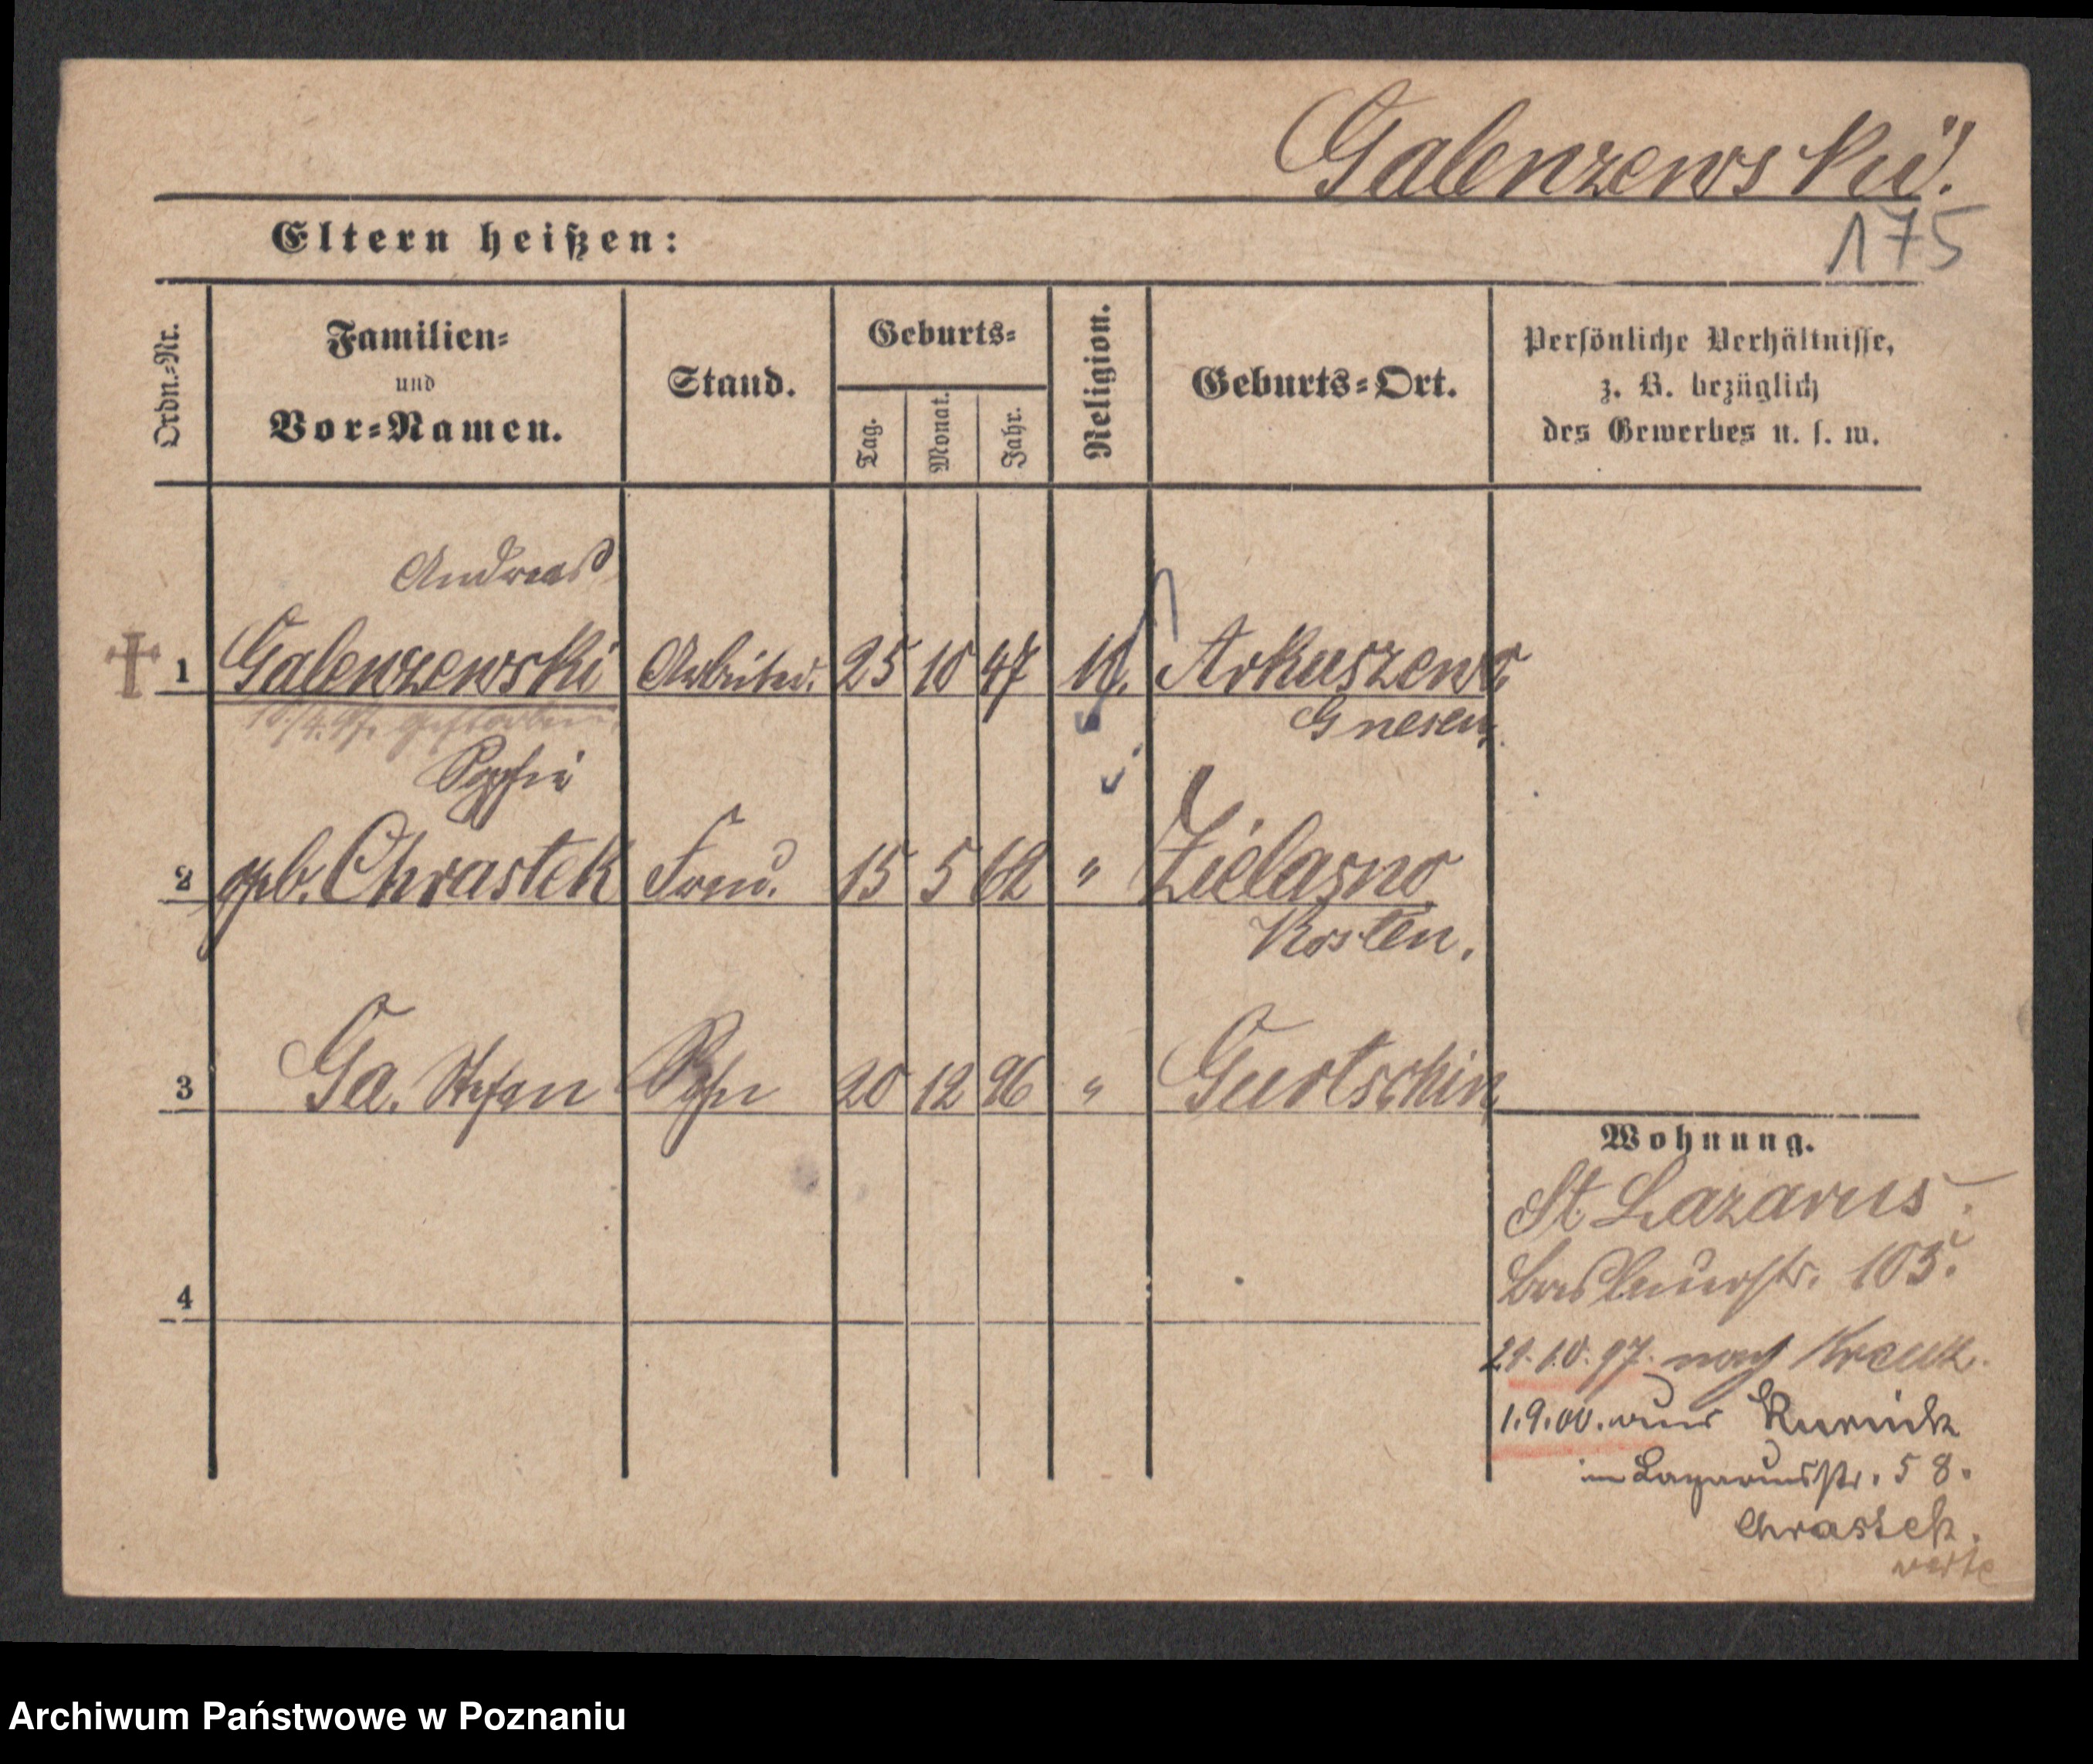 Galenzewski.
175
Eltern heißen:
Ordn.-Nr.
Familien-
und
Vor-Namen.
Stand.
Geburts-
Tag.
Monat.
Jahr.
Religion.
Geburts-Ort.
Persönliche Verhältnisse,
z. B. bezüglich
des Gewerbes u. s. w.
Andreas
1 Galenzewski Arbeiter. 25 10 47 k. Arkuszewo
gestorben Gnesen
Sophie
2 geb. Chrastek Frau. 15 5 62 " Zielasno
Kosten.
3 Ga. Stefan Sohn 20 12 96 " Gurtschin
4
Wohnung.
St. Lazarus
Breslauerstr. 105.
29.10.97. nach
1.9.00. aus Kurnick
in Lazarusstr. 58.
Chrastek.
Archiwum Państwowe w Poznaniu